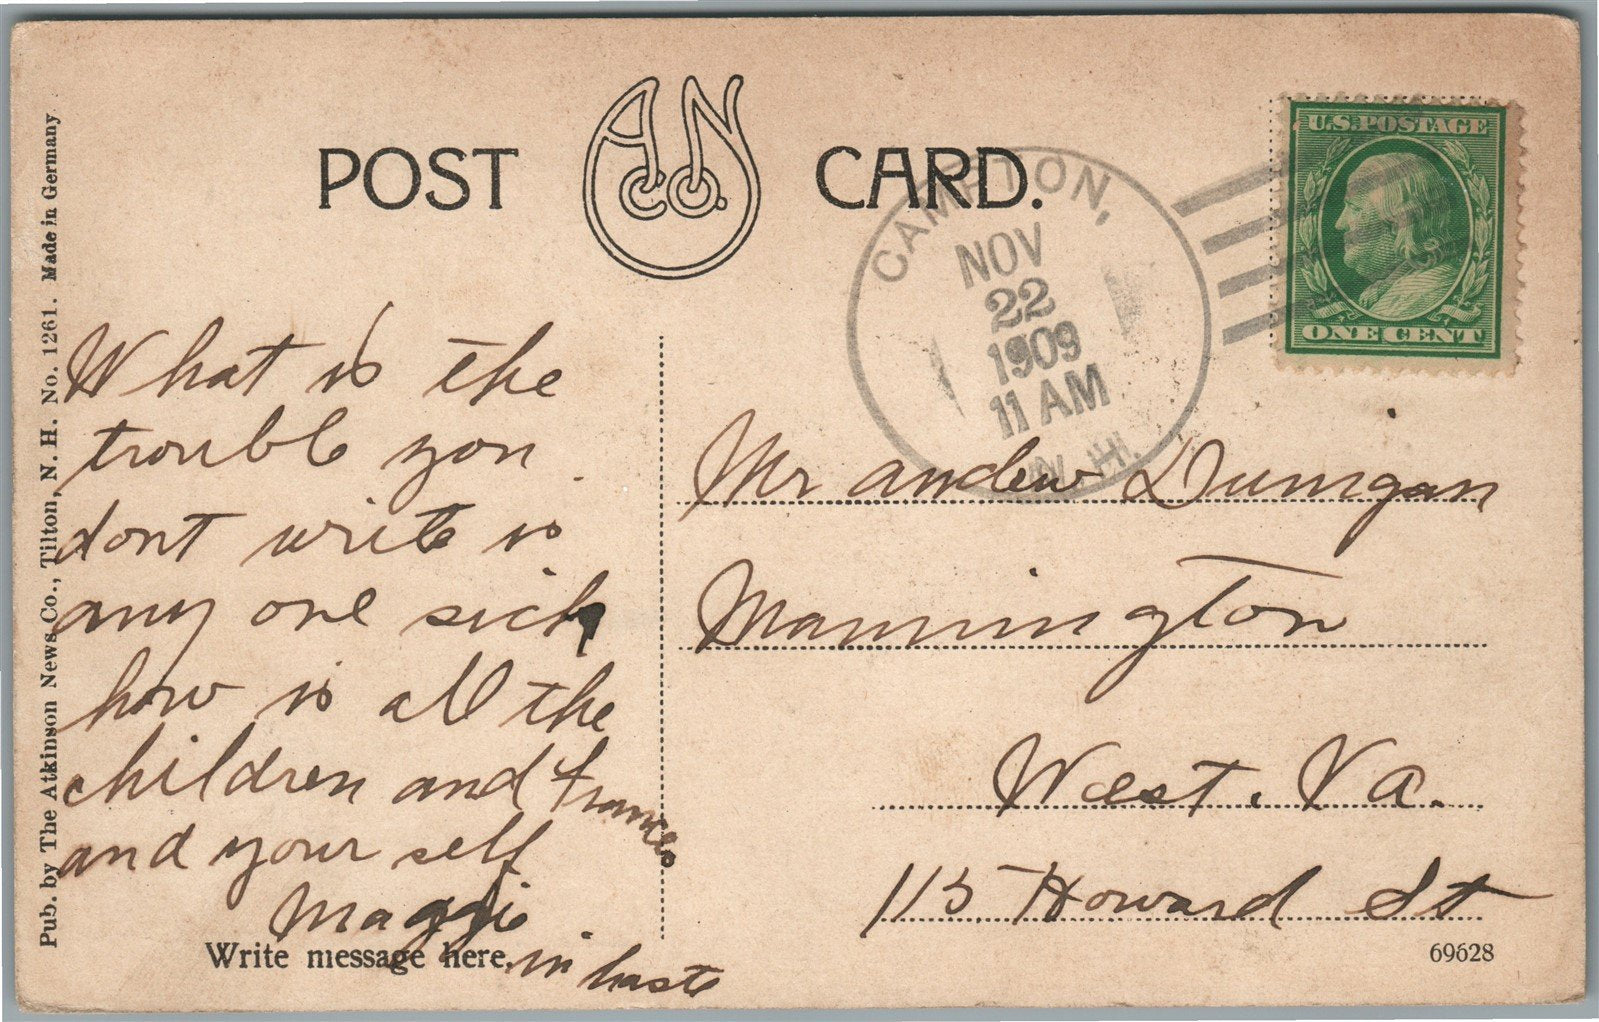 POST CARD.
A.N.Co.
CAMPTON,
NOV
22
1909
11 AM
N.H.
U.S. POSTAGE
ONE CENT
What is the
trouble you
dont write is
any one sick
how is all the
children and Frances
and your self
Maggie
in haste
Write message here.
Mr andew Dunigan
Mannington
West. Va.
115 Howard St
69628
Pub. by The Atkinson News Co., Tilton, N. H. No. 1261. Made in Germany